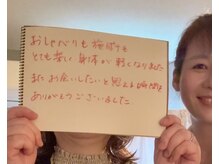 おしゃべりも施術も
とても楽しく身体が軽くなりました
またお会いしたいと思える時間を
ありがとうございました